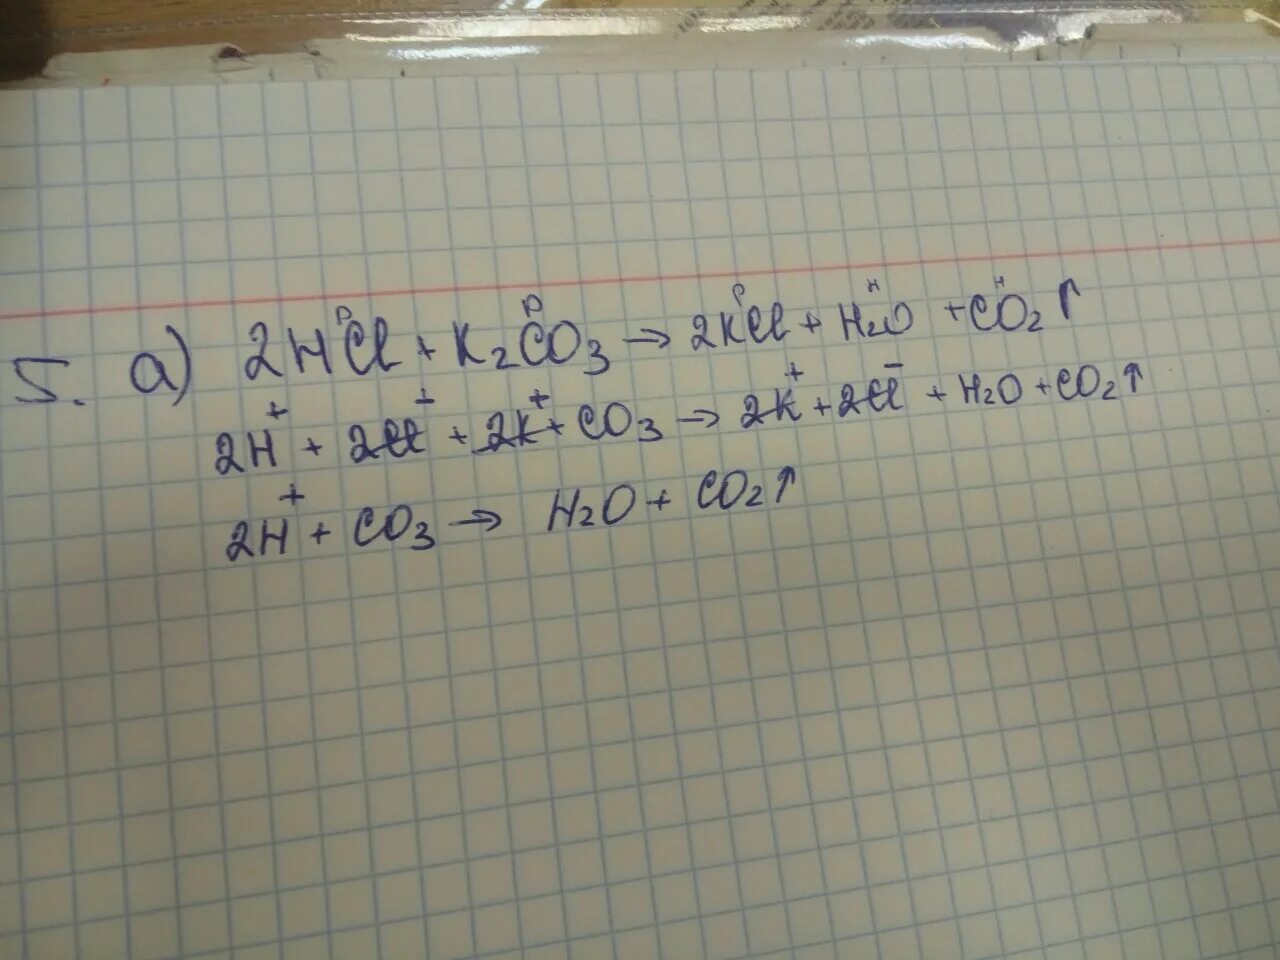 5. а) 2HCl + K₂CO₃ → 2KCl + H₂O + CO₂↑
2H⁺ + 2Cl⁺ + 2K⁺ + CO₃ → 2K⁺ + 2Cl⁻ + H₂O + CO₂↑
2H⁺ + CO₃ → H₂O + CO₂↑